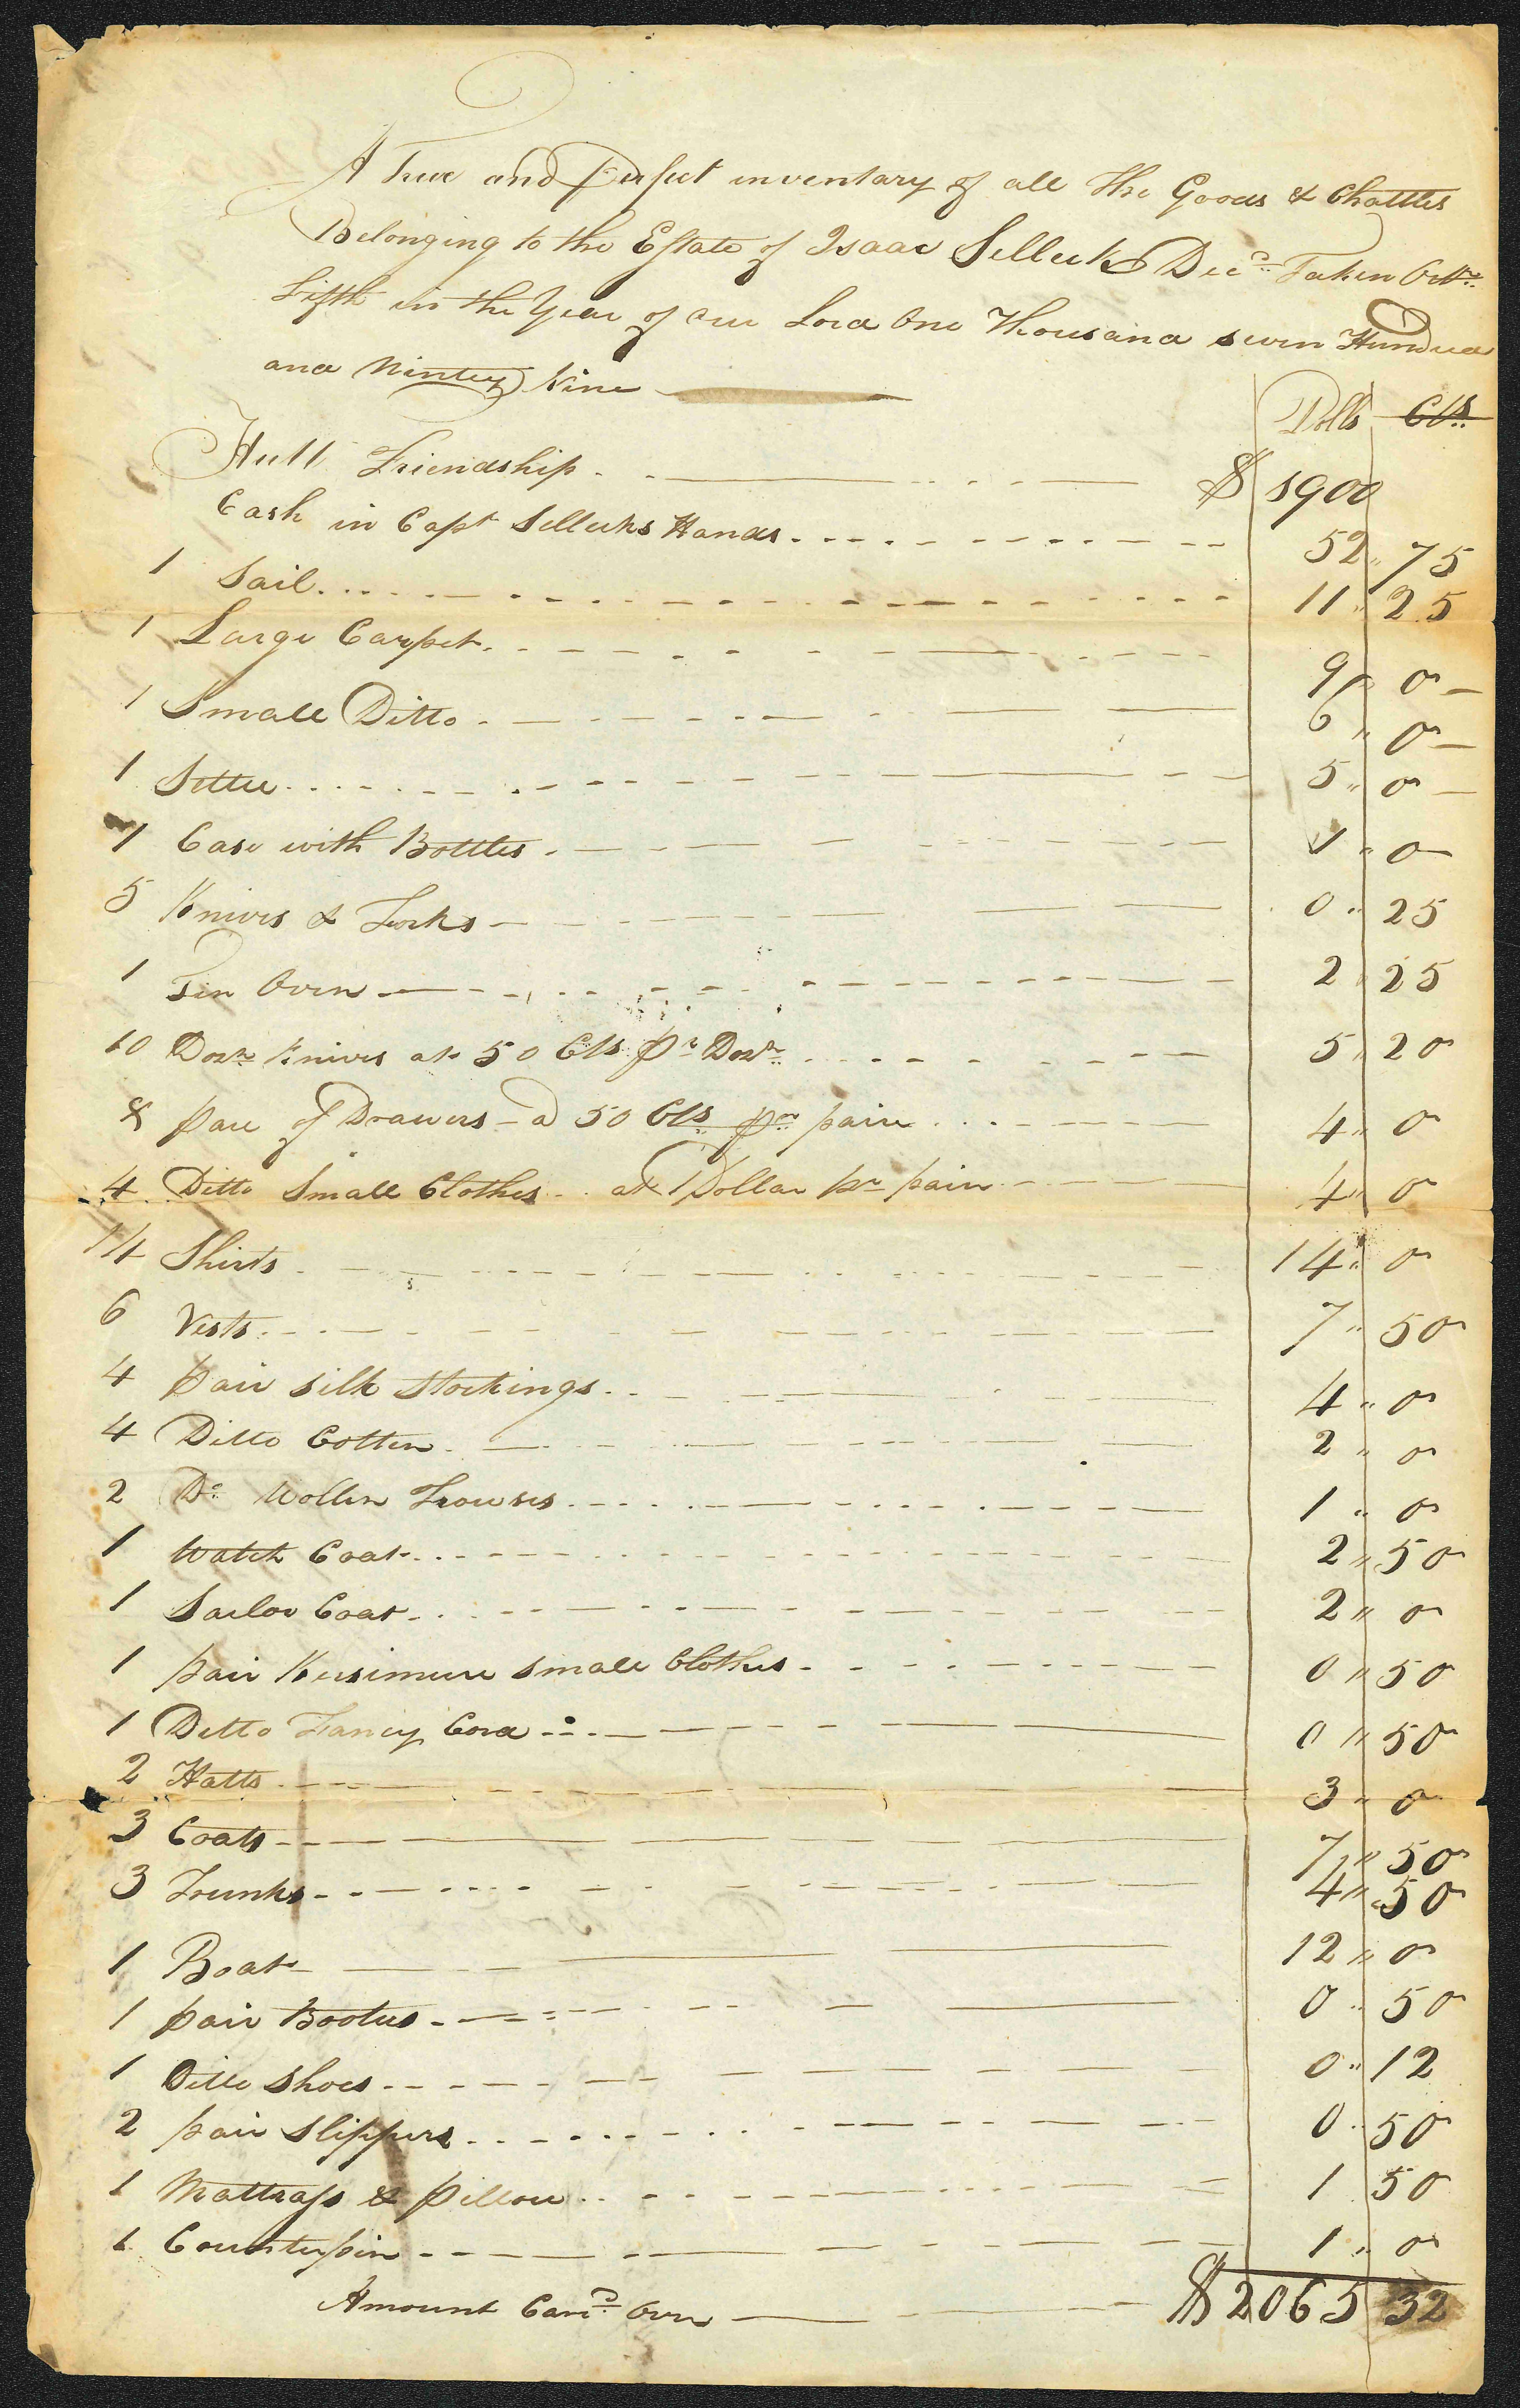 A True and Perfect inventory of all the Goods & Chattles
Belonging to the Estate of Isaac Selleck Decd. Taken Octr.
fifth in the Year of our Lord One Thousand seven Hundred
and Nintey Nine
Dolls Cts
Hull Friendship $ 1900
Cash in Capt Sellecks Hands 52 " 75
1 Sail 11 " 25
1 Large Carpet 9 " 0
1 Small Ditto 6 " 0
1 Settee 5 " 0
1 Case with Bottles 1 " 0
5 Knives & Forks 0 " 25
1 Tin Oven 2 " 25
10 Dozn Knives at 50 Cts pr Dozn 5 " 20
8 pare of Drawers a 50 Cts pr pair 4 " 0
4 Ditto Small Clothes at 1 Dollar pr pair 4 " 0
14 Shirts 14 " 0
6 Vests 7 " 50
4 pair silk stockings 4 " 0
4 Ditto Cotten 2 " 0
2 Do Wollen Trowses 1 " 0
1 Watch Coat 2 " 50
1 Sailor Coat 2 " 0
1 pair Kersimere small Clothes 0 " 50
1 Ditto Fancy Cord 0 " 50
2 Hatts 3 " 0
3 Coats 7 " 50
3 Trunks 4 " 50
1 Boat 12 " 0
1 pair Bootes 0 " 50
1 Ditto Shoes 0 " 12
2 pair Slippers 0 " 50
1 Mattrass & Pillow 1 50
1 Counterpin 1 " 0
Amount Carid Over $ 2065 32